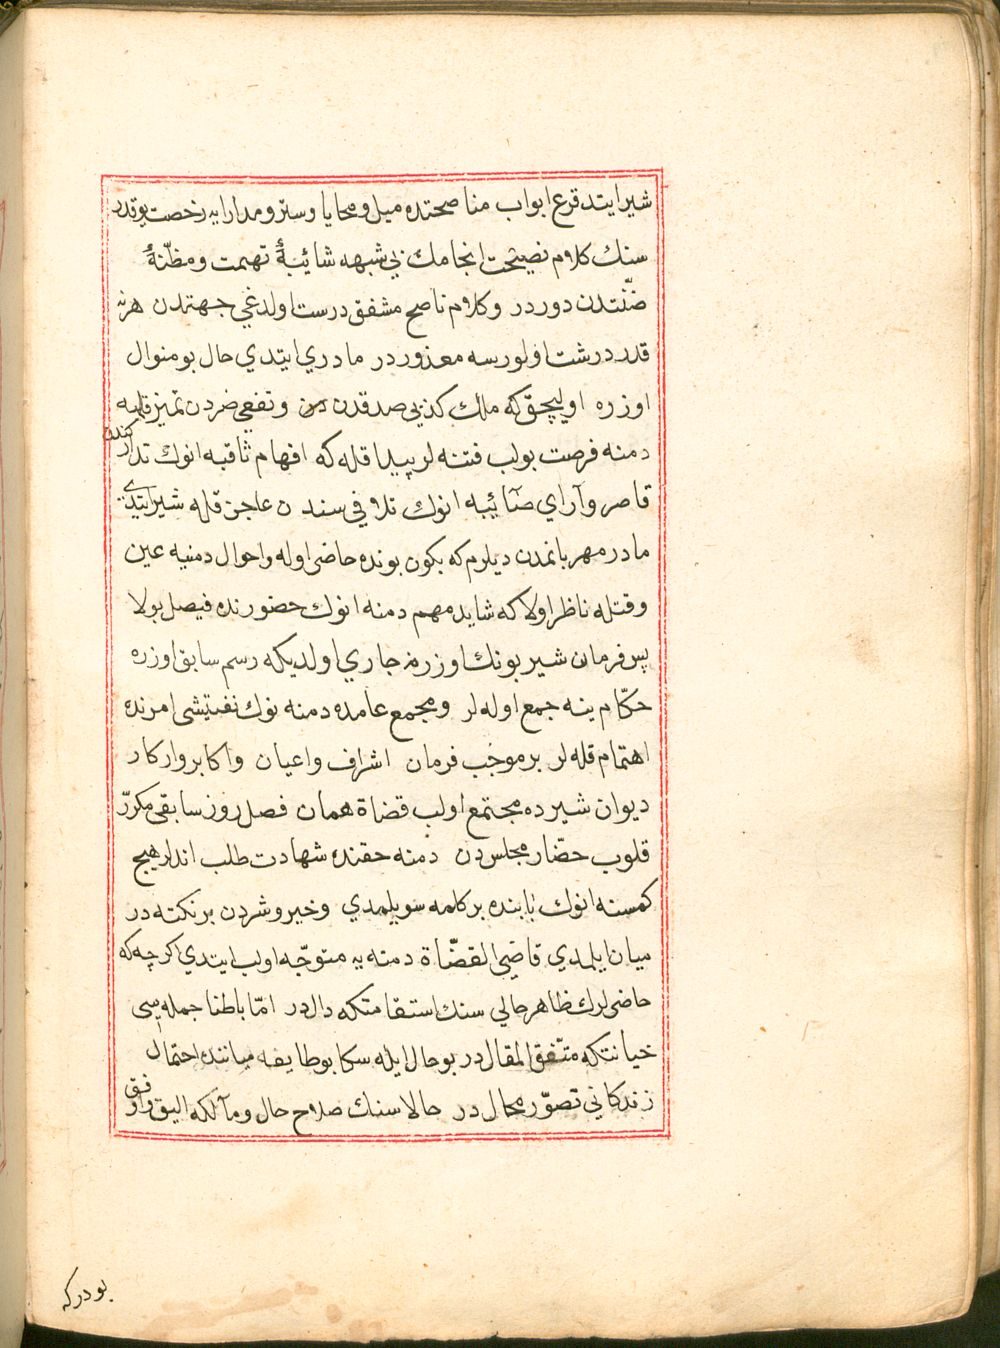 شیر ایتد قرع ابواب مناصحتده میل و محایا وستر و مدارایه رخصت یوقدر
سنك كلام نصیحت انجامك بی شبهه شائبهٔ تهمت و مظنّهٔ
ضنّتدن دور در و كلام ناصح مشفق درست اولدغی جهتدن هر نه
قدر درشت اولورسه معذور در مادری ایتدی حال بو منوال
اوزره اولیجق كه ملك كذبی صدقدن و نفعی ضردن تمیز قلمیه
دمنه فرصت بولب فتنه لر پیدا قله كه افهام ثاقبه انوك تداركندن
قاصر و آرای صائبه انوك تلافی سندن عاجز قله شیر ایتدی
مادر مهربانمدن دیلرم كه بكون بونده حاضر اوله و احوال دمنیه عین
وقتله ناظر اولا كه شاید مهم دمنه انوك حضورنده فیصل بولا
پس فرمان شیر بونك اوزرنه جاری اولدیكه رسم سابق اوزره
حكّام ینه جمع اوله لر و مجمع عامده دمنه نوك تفتیشی امرنده
اهتمام قله لر بر موجب فرمان اشراف و اعیان و اكابر و اركار
دیوان شیرده مجتمع اولب قضاة همان فصل روز سابقی مكرّر
قلوب حضّار مجلسدن دمنه حقنده شهادت طلب اندلر هیچ
كمسنه انوك بابنده بر كلمه سویلمدی و خیر و شردن بر نكته در
میان ایلمدی قاضی القضّاة دمنه یه متوجّه اولب ایتدی اكرچه كه
حاضرلرك ظاهر حالی سنك استقامتكه دالدر امّا باطنا جمله سی
خیانتكه متّفق المقالدر بو حال ایله سكا بو طایفه میاننده احتمال
زندكانی تصوّر محالدر حالا سنك صلاح حال و مآلكه الیق و اوفق
بودر كه